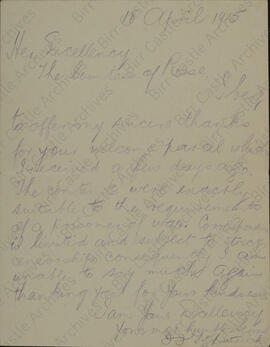 18 April 1915
Her Excellency
The Countess of Rosse,
I beg
to offer my sincere thanks
for your welcome parcel which
I received a few days ago.
The contents were exactly
suitable to the requirements
of a prisoner of war. Correspondence
is limited and subject to strong
censorship consequently I am
unable to say much. Again
thanking you for your kindness
I am Your Excellency
Your most humble servant